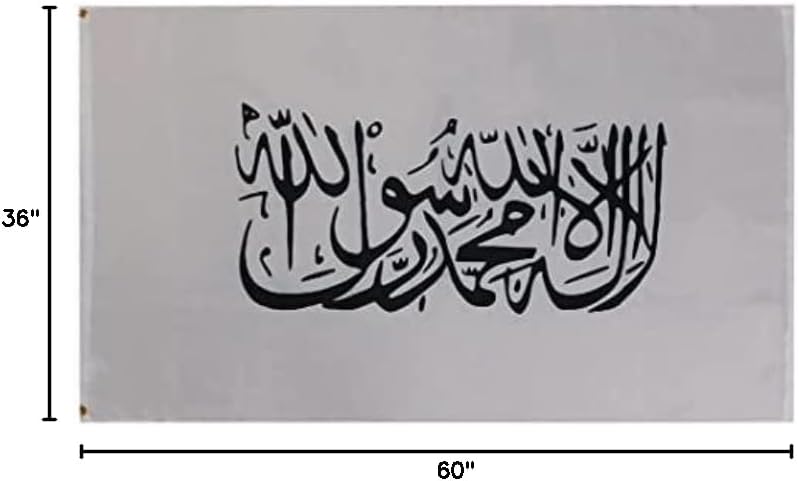 لا إله إلا الله محمد رسول الله
36"
60"